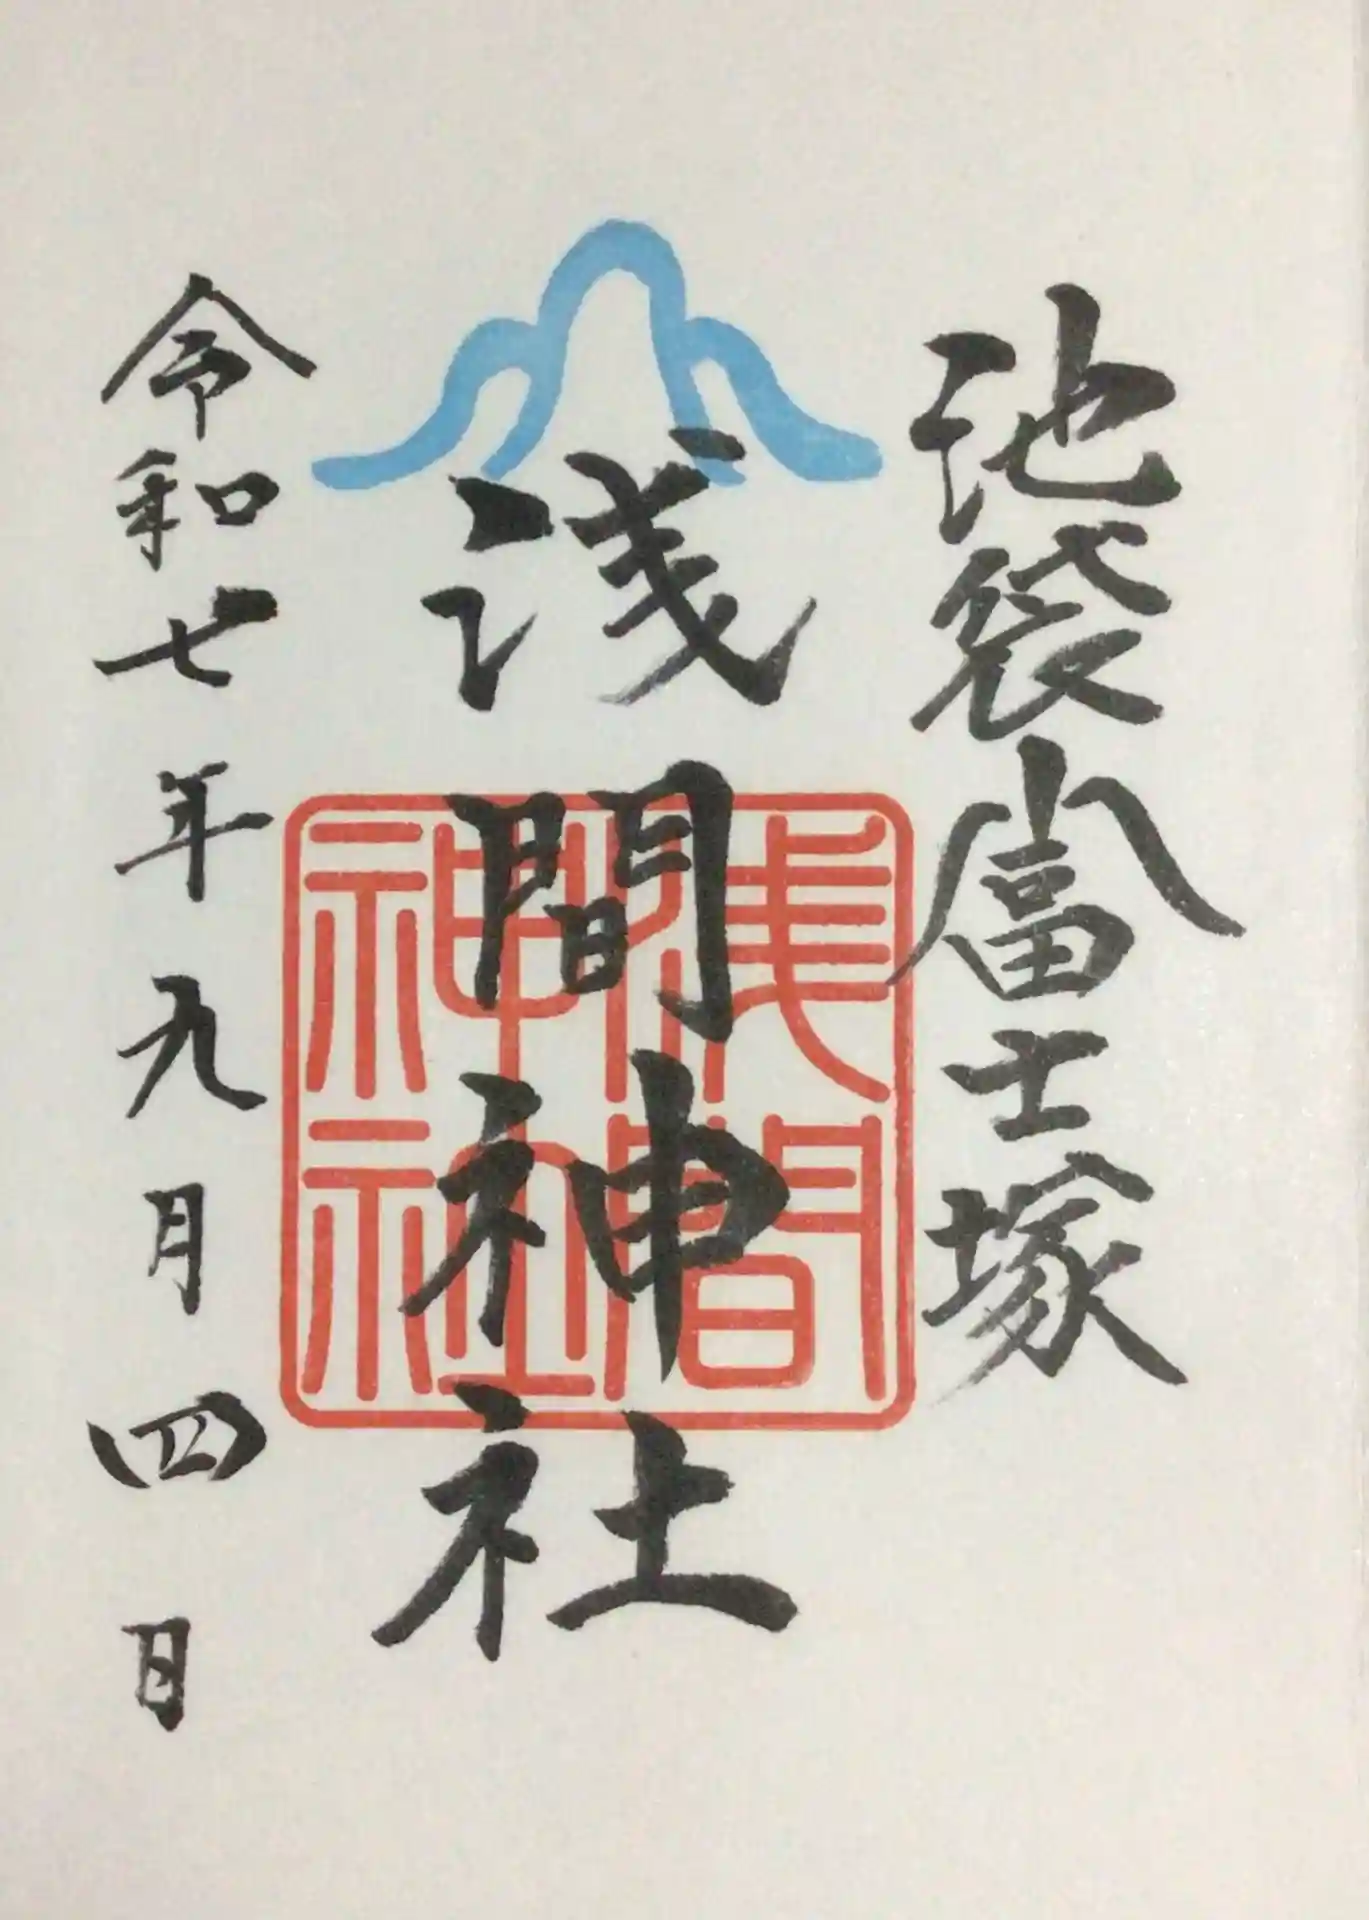 池袋富士塚
浅間神社
浅間神社
令和七年九月四日